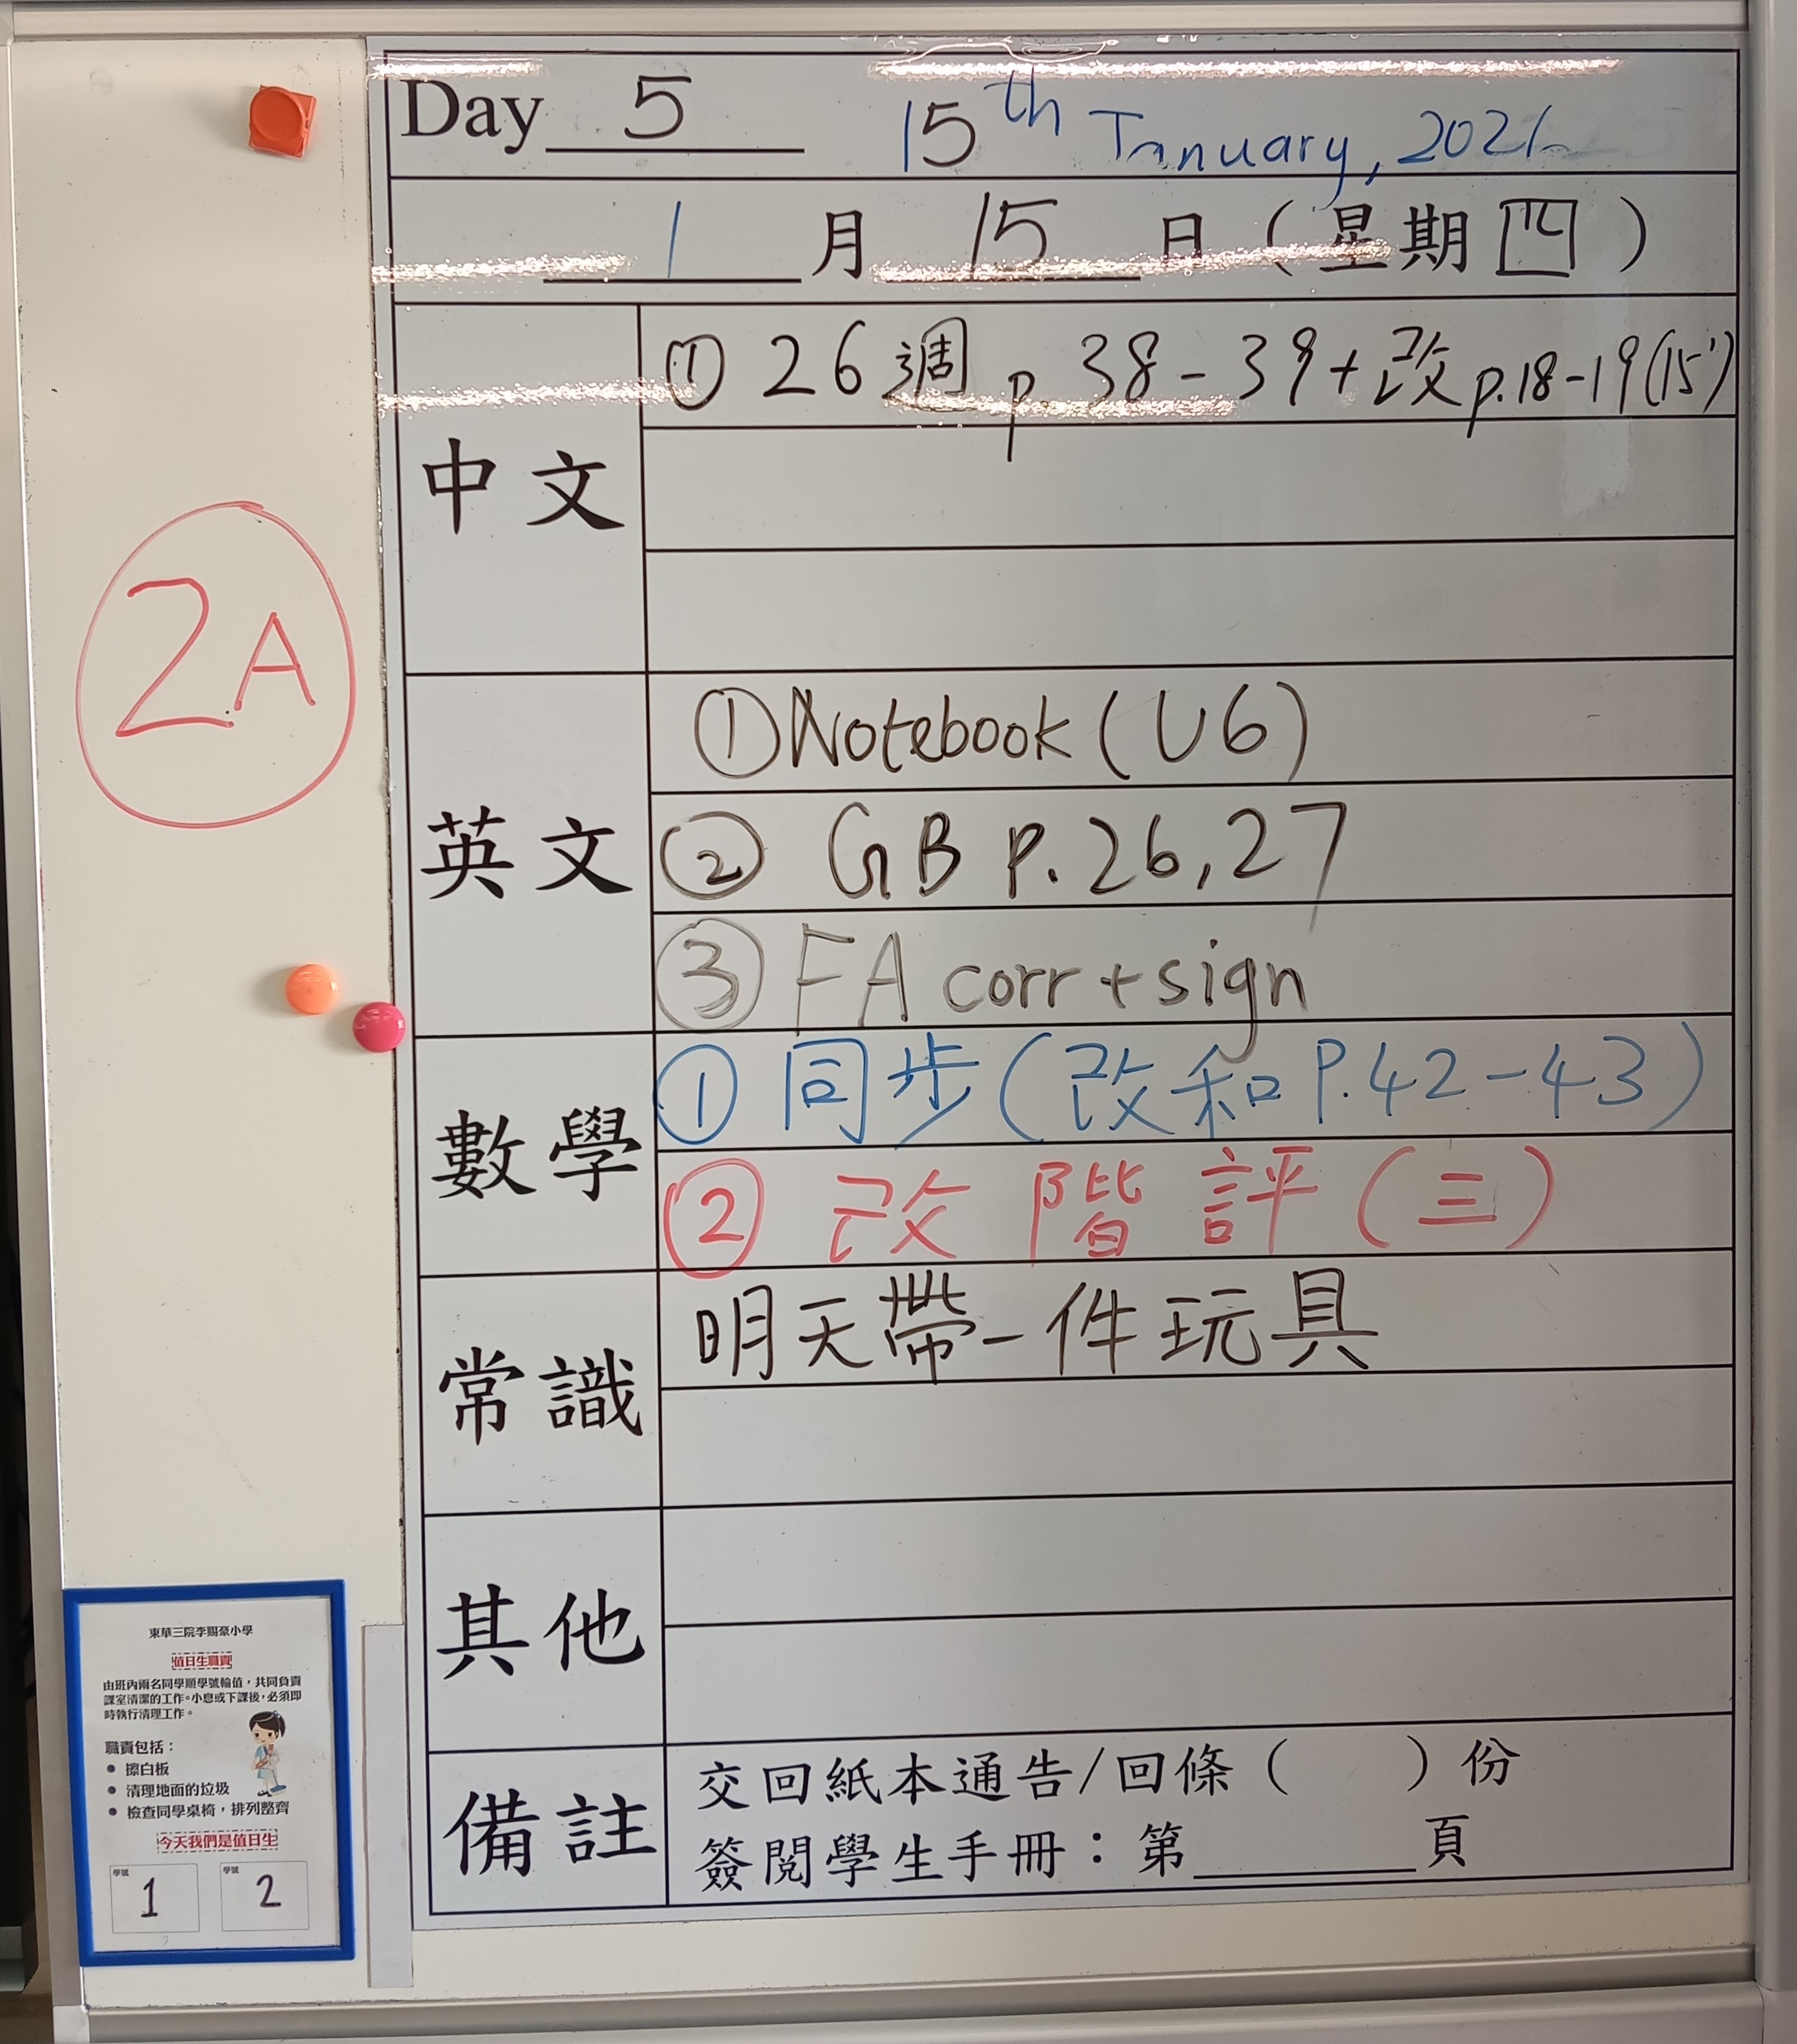 Day 5 15th January, 2026
1 月 15 日 ( 星期四 )
中文
① 26 週 p. 38 - 39 + 改 p.18-19 (15')
英文
① Notebook (U6)
② GB P. 26, 27
③ FA corr + sign
數學
① 同步 (改和 P.42-43)
② 改階評 (三)
常識
明天帶一件玩具
其他
備註
交回紙本通告/回條 ( ) 份
簽閱學生手冊：第______頁
2A
東華三院李賜豪小學
值日生職責
由班內兩名同學順學號輪值，共同負責
課室清潔的工作。小息或下課後，必須即
時執行清理工作。
職責包括：
● 擦白板
● 清理地面的垃圾
● 檢查同學桌椅，排列整齊
今天我們是值日生
學號 1
學號 2